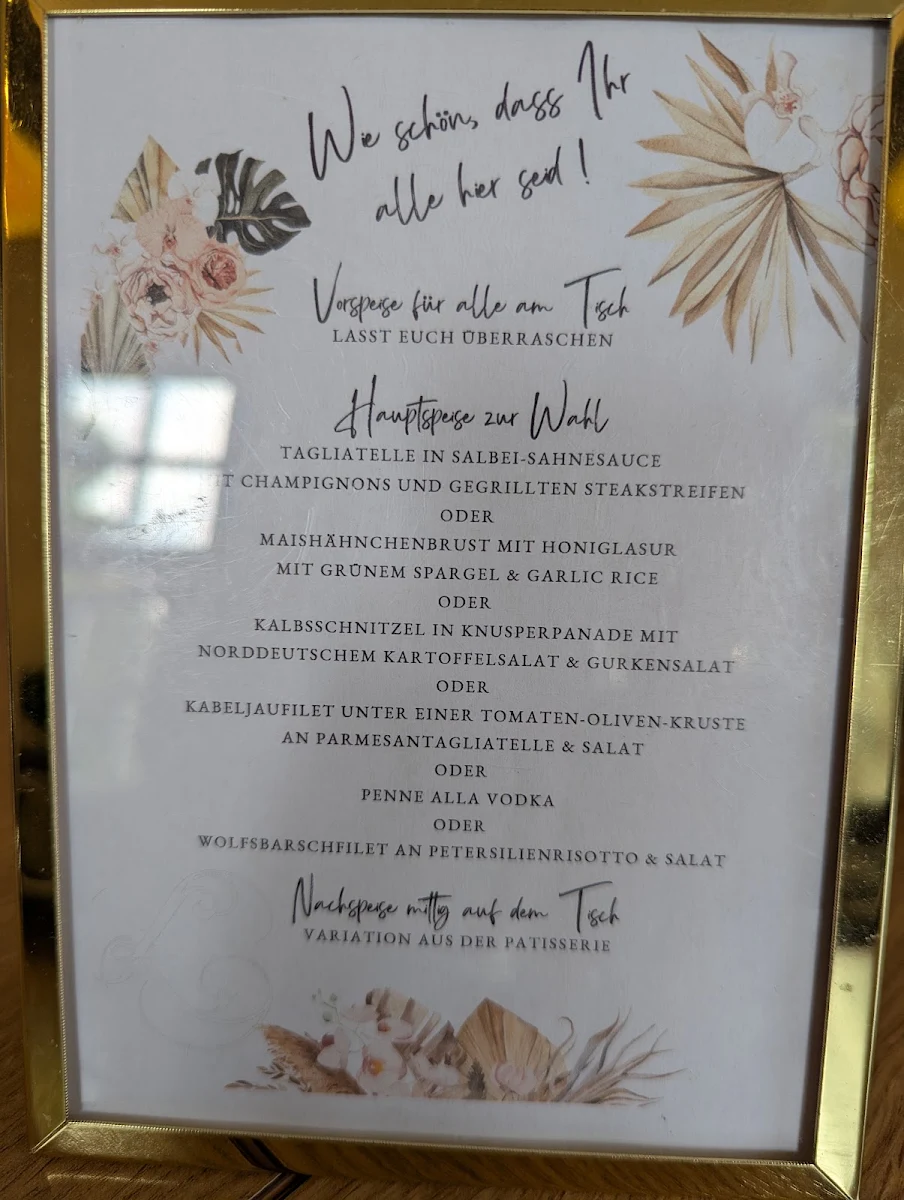 Wie schön, dass Ihr
alle hier seid!
Vorspeise für alle am Tisch
LASST EUCH ÜBERRASCHEN
Hauptspeise zur Wahl
TAGLIATELLE IN SALBEI-SAHNESAUCE
MIT CHAMPIGNONS UND GEGRILLTEN STEAKSTREIFEN
ODER
MAISHÄHNCHENBRUST MIT HONIGLASUR
MIT GRÜNEM SPARGEL & GARLIC RICE
ODER
KALBSSCHNITZEL IN KNUSPERPANADE MIT
NORDDEUTSCHEM KARTOFFELSALAT & GURKENSALAT
ODER
KABELJAUFILET UNTER EINER TOMATEN-OLIVEN-KRUSTE
AN PARMESANTAGLIATELLE & SALAT
ODER
PENNE ALLA VODKA
ODER
WOLFSBARSCHFILET AN PETERSILIENRISOTTO & SALAT
Nachspeise mittig auf dem Tisch
VARIATION AUS DER PATISSERIE